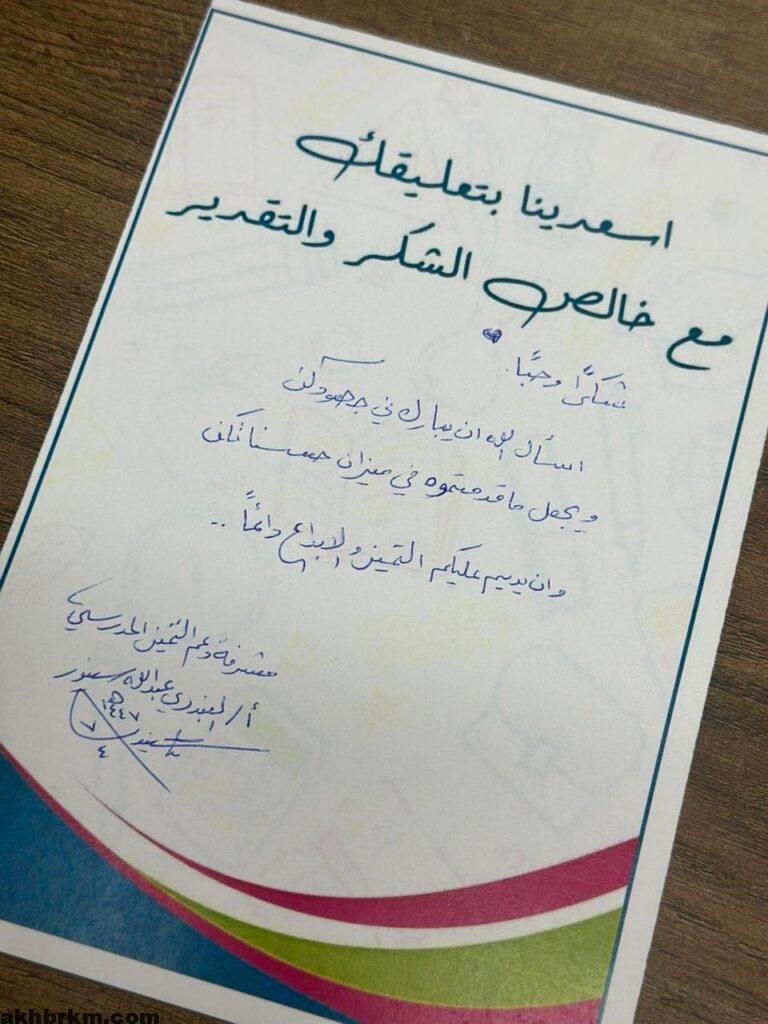 اسعدينا بتعليقك
مع خالص الشكر والتقدير
شكرًا وحبًا.
اسأل الله ان يبارك في جهودكن
ويجعل ما قدمتموه في ميزان حسناتكن
وان يديم عليكم التميز والابداع دائمًا ..
مشرفة دعم التميز المدرسي
أ/ البندري عبدالله
١٤٤٧هـ
٧
٤
akhbrkm.com